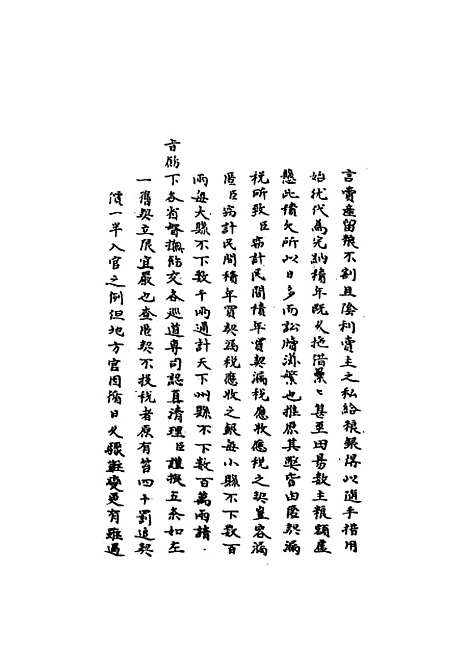 言賣產留糧不割且陰利賣主之私給糧銀得以隨手措用
始猶代為完納積年旣久拖借纍〻甚至田易數主糧額虛
懸此積欠所以日多而訟牘滋繁也推原其弊皆由匿契漏
稅所致臣竊計民間積年買契漏稅應收應稅之契豈容漏
匿臣竊計民間積年買契爲稅應收之銀每小縣不下數百
兩每大縣不下數千兩通計天下州縣不下數百萬兩請
旨飭下各省督撫飭交各巡道專司認真清理臣謹擬五条如左
一舊契立限宜嚴也查匿契不投稅者原有笞四十罰追契
價一半入官之例但地方官因循日久驟難變更有雖過